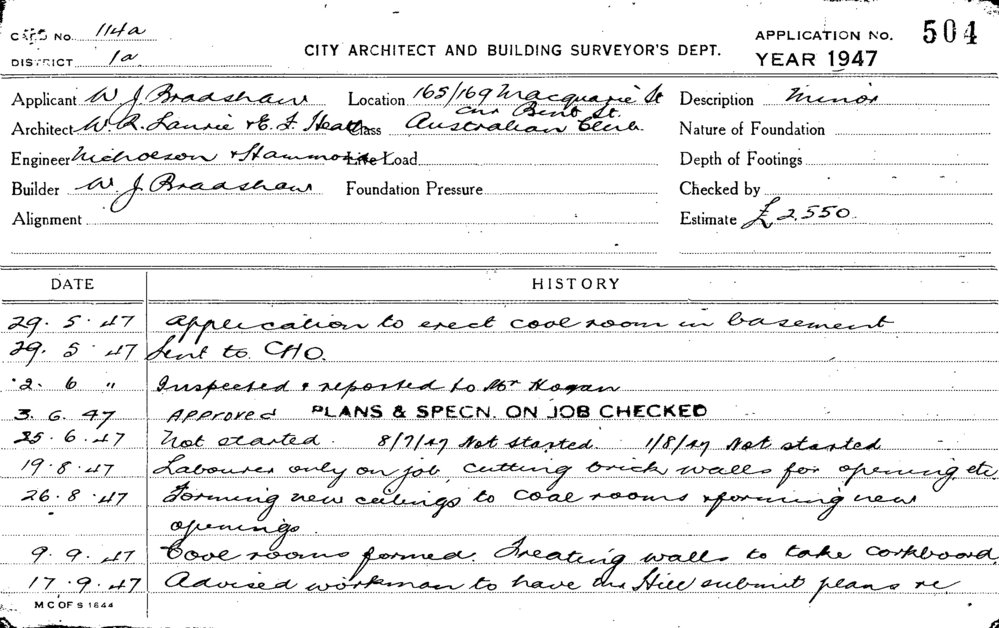 CARD No. 114a
DISTRICT 1a
CITY ARCHITECT AND BUILDING SURVEYOR'S DEPT.
APPLICATION No. 504
YEAR 1947
Applicant W J Bradshaw Location 165/169 Macquarie St Description Minor
cnr Bent St.
Architect W. R. Laurie & E. F. Heath Class Australian Club. Nature of Foundation
Engineer Nicholson & Hammond Live Load Depth of Footings
Builder W. J Bradshaw Foundation Pressure Checked by
Alignment Estimate £2,550.
DATE HISTORY
29. 5. 47 Application to erect cool room in basement
29. 5 47 Sent to CHO.
2. 6 " Inspected & reported to Mr Hogan
3. 6. 47 Approved PLANS & SPECN. ON JOB CHECKED
25. 6. 47 Not started. 8/7/47 Not started. 1/8/47 Not started
19. 8. 47 Labourer only on job, cutting brick walls for opening etc.
26. 8. 47 Forming new ceilings to cool rooms & forming new
openings.
9. 9. 47 Cool rooms formed. Treating walls to take corkboard.
17. 9. 47 Advised workman to have Mr Hill submit plans re
M C OF S 1844